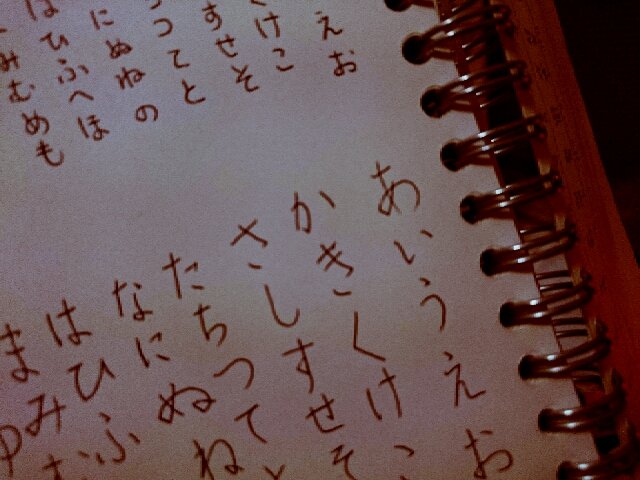 えお
けこ
すせそ
つてと
にぬねの
はひふへほ
みむめも
あいうえお
かきくけ
さしすせそ
たちつて
なにぬね
はひふ
まみむ
ゆ